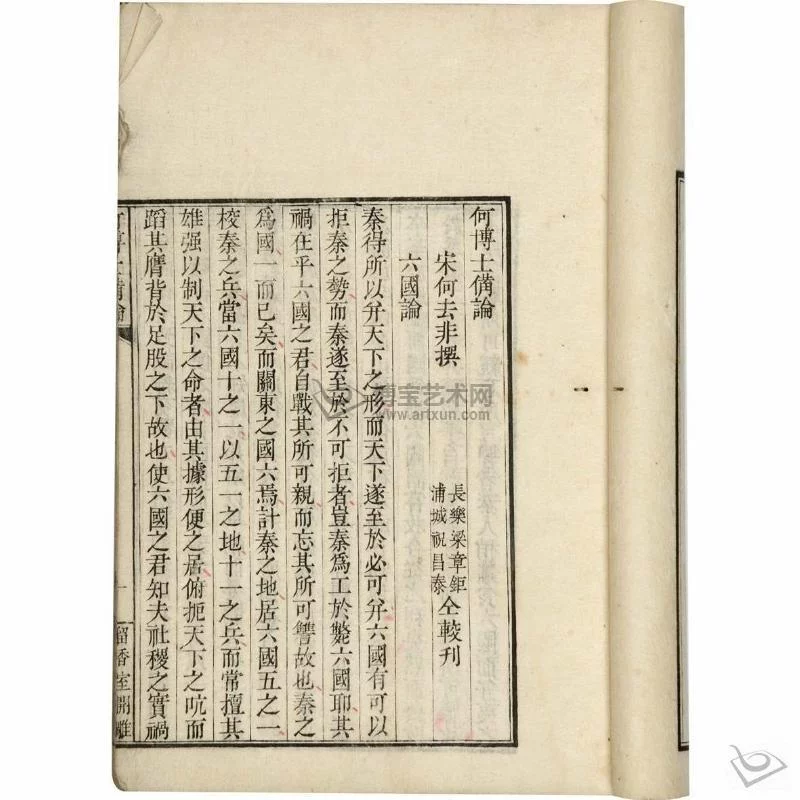 何博士備論
宋何去非撰
長樂梁章鉅
浦城祝昌泰
仝較刊
六國論
秦得所以并天下之形而天下遂至於必可并六國有可以
拒秦之勢而秦遂至於不可拒者豈秦爲工於斃六國耶其
禍在乎六國之君自戰其所可親而忘其所可讐故也秦之
爲國一而已矣而關東之國六焉計秦之地居六國五之一
校秦之兵當六國十之一以五一之地十一之兵而常擅其
雄强以制天下之命者由其據形便之居俯扼天下之吭而
蹈其膺背於足股之下故也使六國之君知夫社稷之實禍
何博士備論
一
留香室開雕
博宝艺术网
www.artxun.com